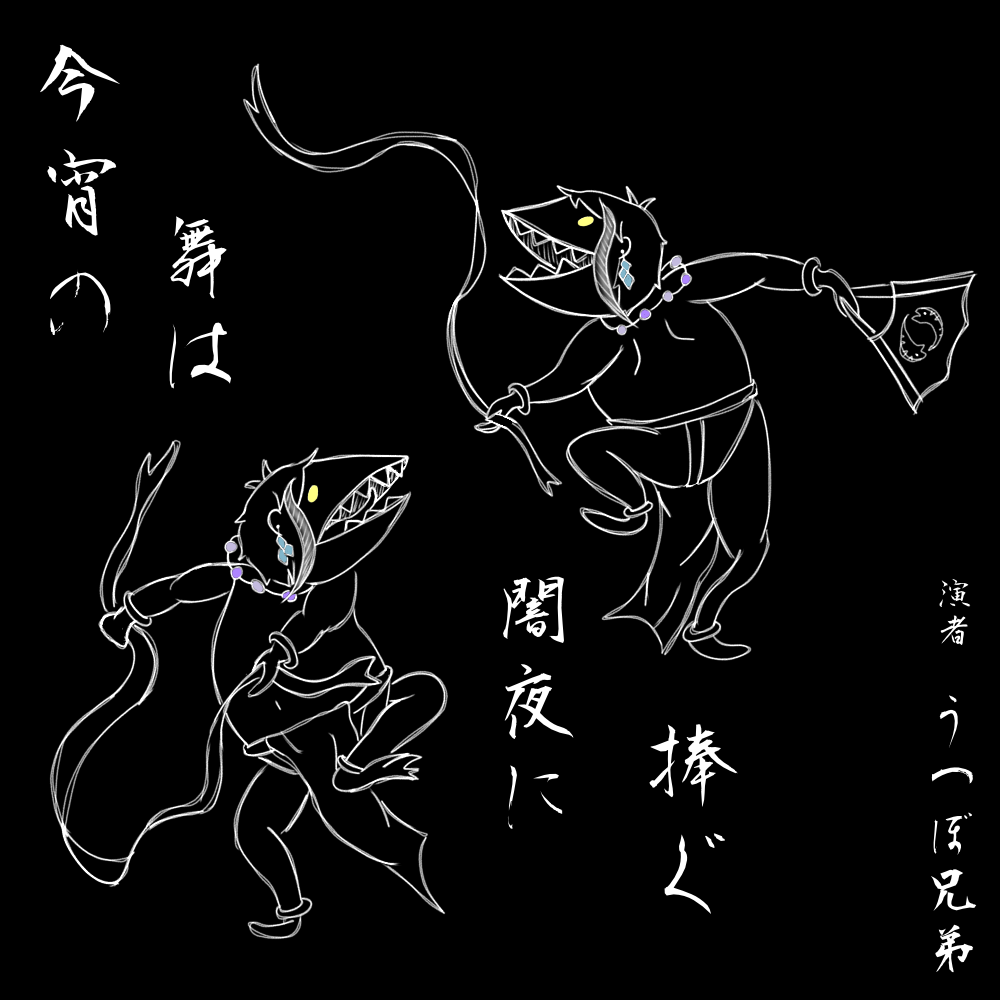 今宵の
舞は
闇夜に
捧ぐ
演者 うつぼ兄弟